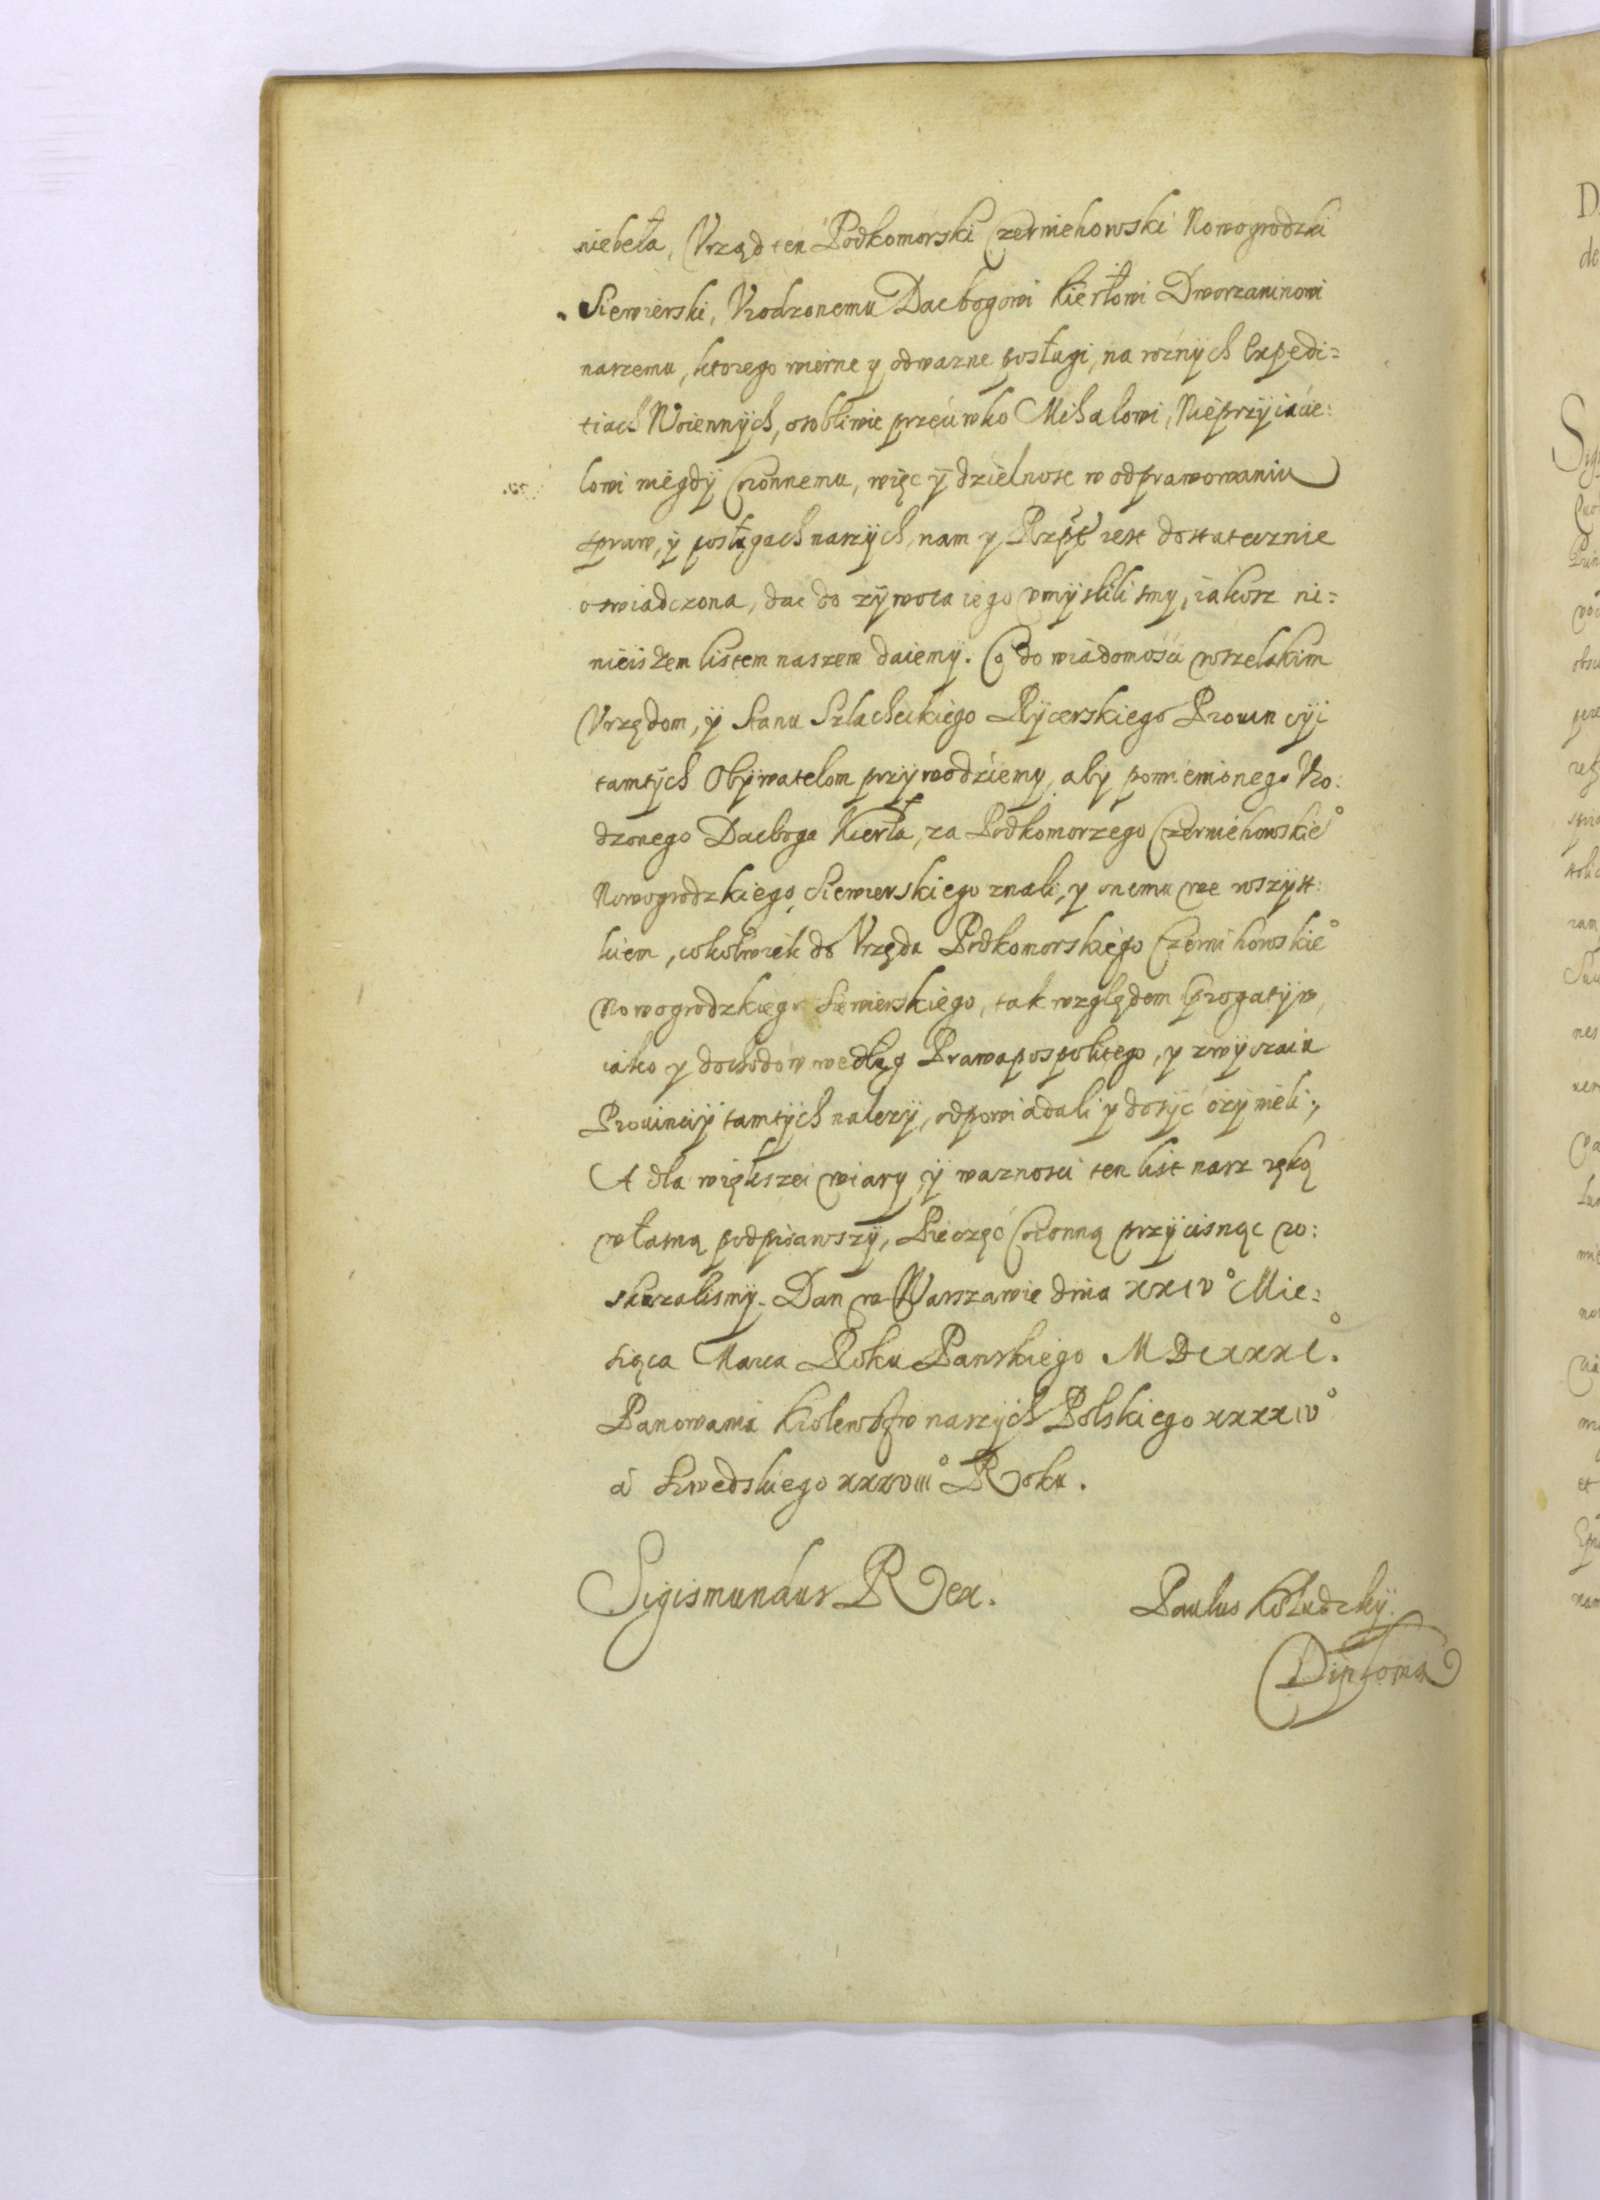 niebeła, Vrząd ten Podkomorski Czerniehowski Nowogrodzki
Siewierski, Vrodzonemu Dacbogowi Kierłowi Dworzaninowi
naszemu, ktorego wierne y odwazne posługi, na roznych Expedi=
tiach Woiennych, osobliwie przeciwko Michałowi, Nieprzyiacie:
lowi niegdy Coronnemu, więc y dzielnosc w odprawowaniu
spraw, y posługach naszych, nam y Rzptey iest dostatecznie
oswiadczona, dac do zywota iego vmyslili smy, iakosz ni=
nieiszem listem naszem daiemy. Co do wiadomosci wszelakim
Vrzędom, y Stanu Szlacheckiego Rycerskiego Prouincyi
tamtych Obywatelom przywodziemy, aby pomienionego Vro:
dzonego Dacboga Kierła, za Podkomorzego Czerniehowskie°
Nowogrodzkiego Siewierskiego znali, y onemu we wszyst:
kiem, cokolwiek do Vrzędu Podkomorskiego Czernihowskie°
Nowogrodzkiego Siewierskiego, tak względem Prerogatyw,
iako y dochodow według Prawa pospolitego, y zwyczaiu
Prouinciy tamtych nalezy, odpowiadali y dosyć czynieli,
A dla większei wiary, y waznosci ten list nasz ręką
własną podpisawszy, Pieczęć Coronną przycisnąc ro:
skazalismy. Dan w Warszawie dnia XXIV° Mie=
siąca Marca Roku Panskiego MDCXXXI°.
Panowania Krolewstw naszych Polskiego XXXXIV°
á Szwedskiego XXXVIII° Roku.
Sigismundus Rex. Paulus Kołudzky.
Diploma